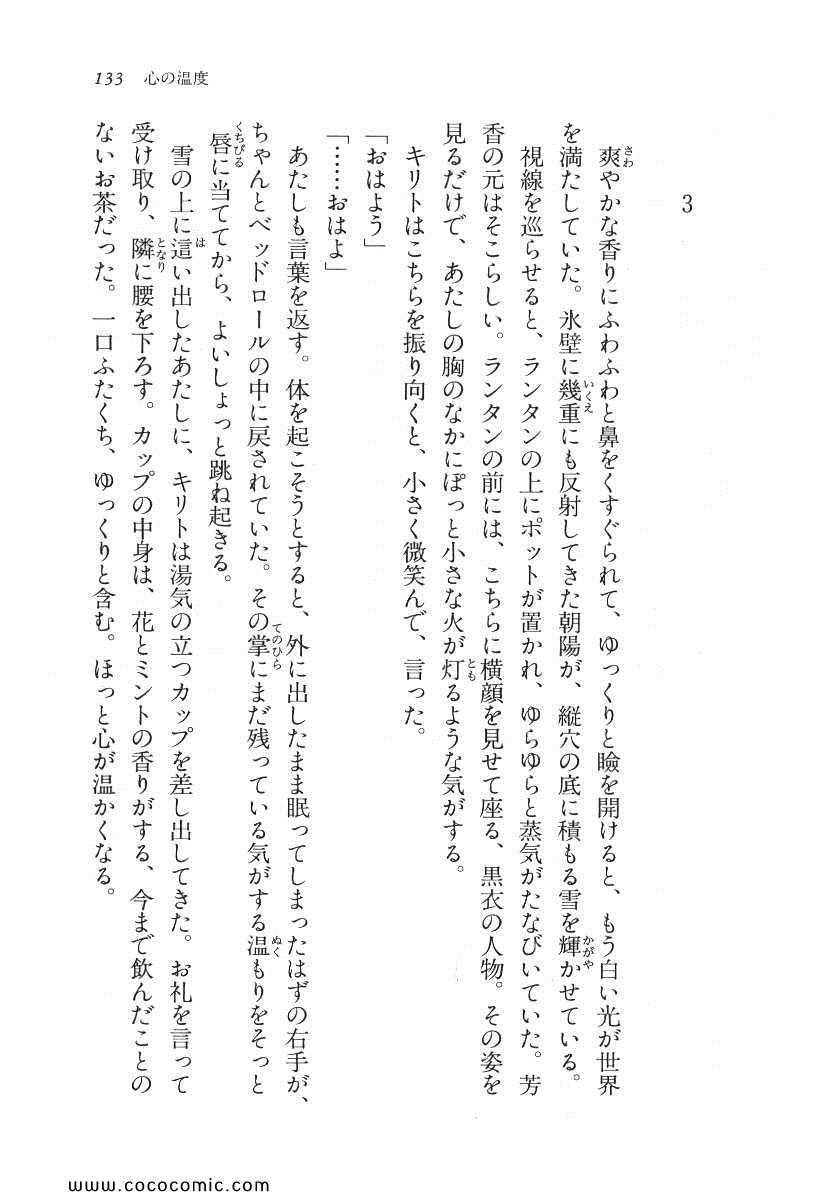 133 心の温度
3
爽やかな香りにふわふわと鼻をくすぐられて、ゆっくりと瞼を開けると、もう白い光が世界
を満たしていた。氷壁に幾重にも反射してきた朝陽が、縦穴の底に積もる雪を輝かせている。
視線を巡らせると、ランタンの上にポットが置かれ、ゆらゆらと蒸気がたなびいていた。芳
香の元はそこらしい。ランタンの前には、こちらに横顔を見せて座る、黒衣の人物。その姿を
見るだけで、あたしの胸のなかにぽっと小さな火が灯るような気がする。
キリトはこちらを振り向くと、小さく微笑んで、言った。
「おはよう」
「……おはよ」
あたしも言葉を返す。体を起こそうとすると、外に出したまま眠ってしまったはずの右手が、
ちゃんとベッドロールの中に戻されていた。その掌にまだ残っている気がする温もりをそっと
唇に当ててから、よいしょっと跳ね起きる。
雪の上に這い出したあたしに、キリトは湯気の立つカップを差し出してきた。お礼を言って
受け取り、隣に腰を下ろす。カップの中身は、花とミントの香りがする、今まで飲んだことの
ないお茶だった。一口ふたくち、ゆっくりと含む。ほっと心が温かくなる。
www.cococomic.com